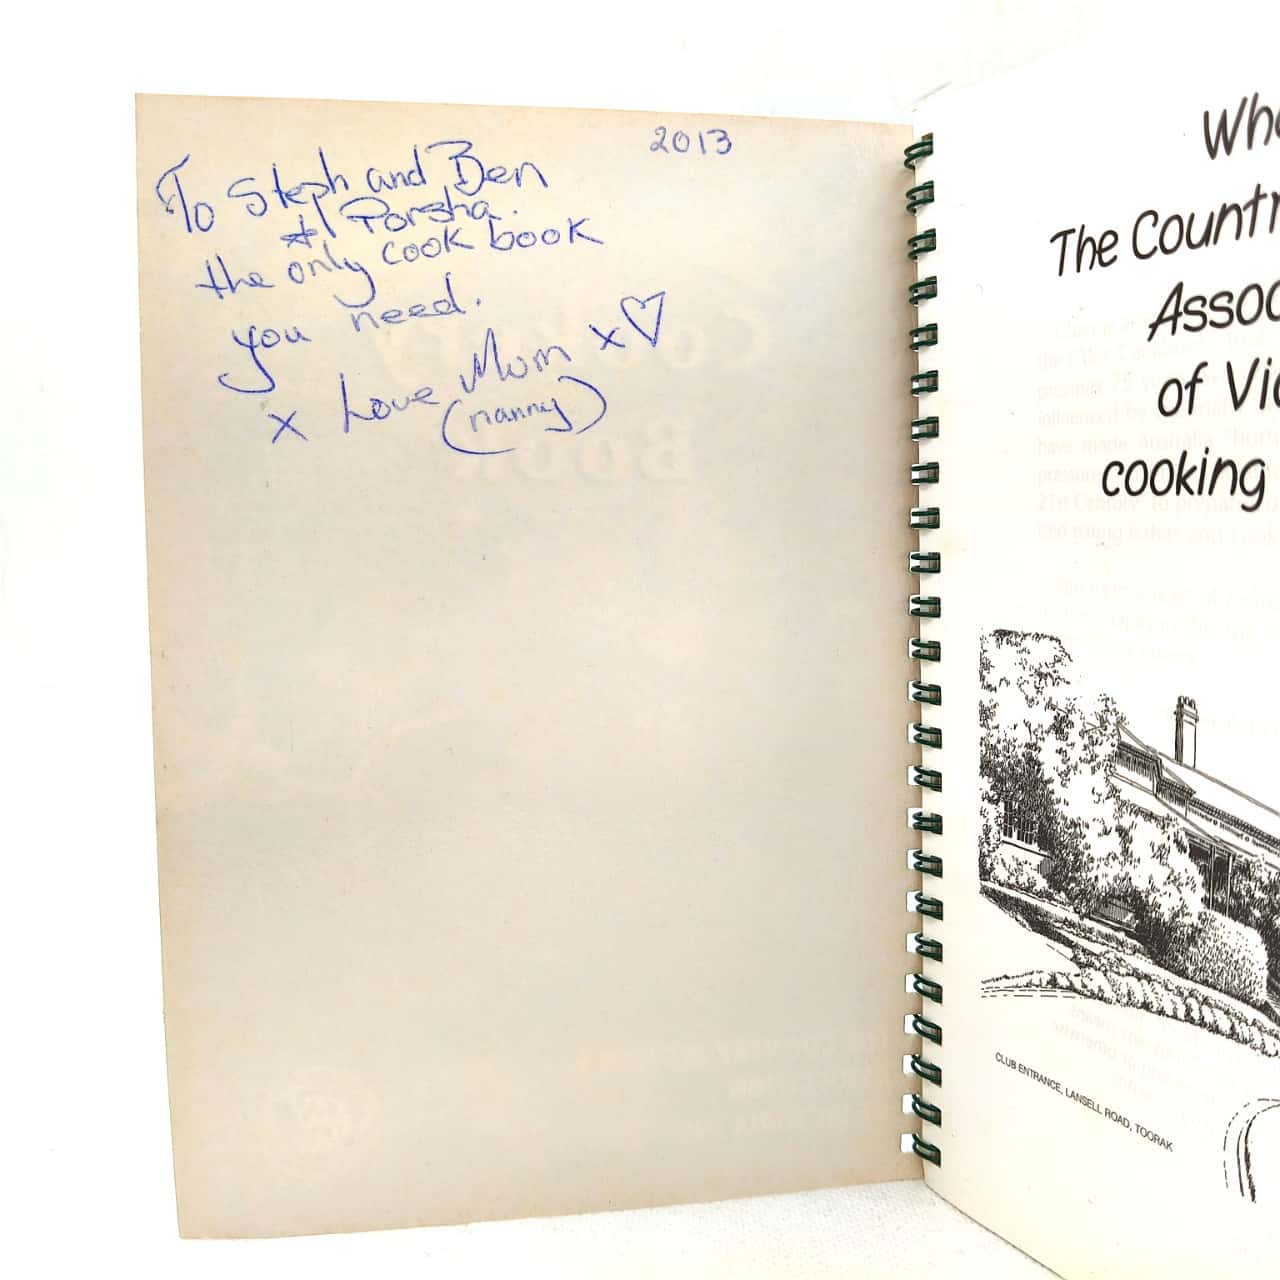 2013
To Steph and Ben
+ Porsha.
the only cook book
you need.
x Love Mum x♡
(nanny)
Who
The Countr
Assoc
of Vic
cooking
CLUB ENTRANCE, LANSELL ROAD, TOORAK